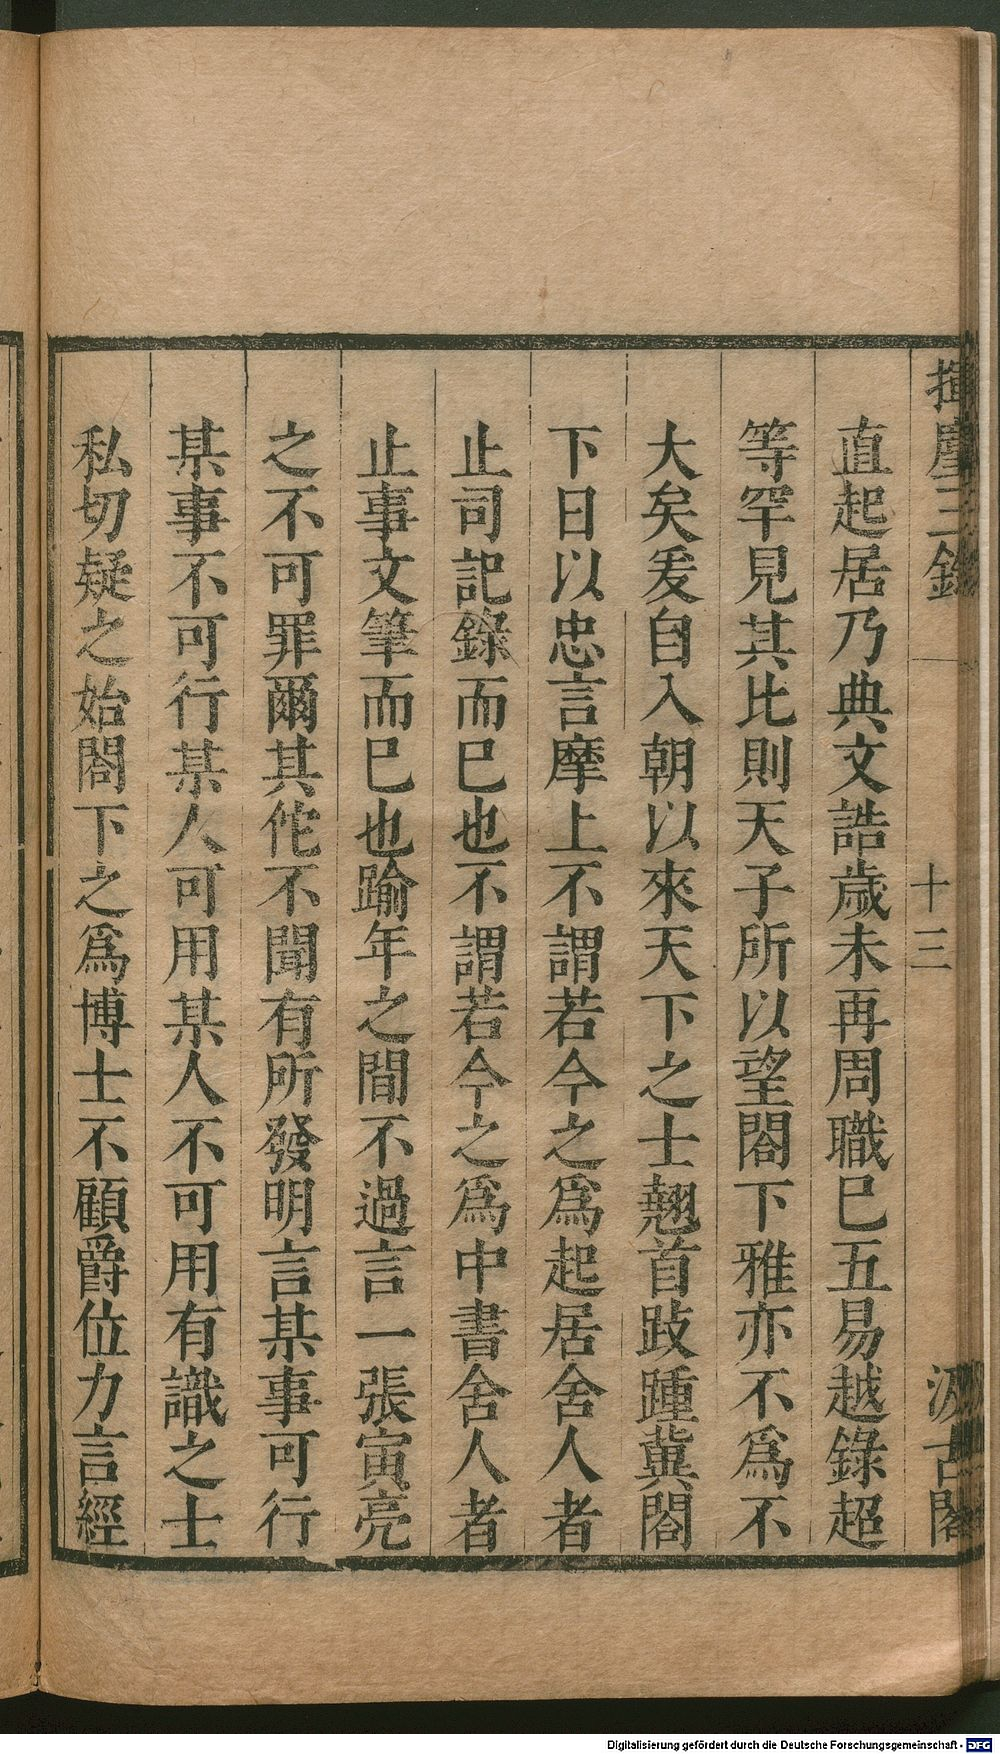 揮麈三錄
十三
汲古閣
直起居乃典文誥歲未再周職巳五易越錄超
等罕見其比則天子所以望閤下雅亦不爲不
大矣爰自入朝以來天下之士翹首跂踵冀閤
下日以忠言摩上不謂若今之爲起居舍人者
止司記錄而巳也不謂若今之爲中書舍人者
止事文筆而巳也踰年之間不過言一張寅亮
之不可罪爾其佗不聞有所發明言某事可行
某事不可行某人可用某人不可用有識之士
私切疑之始閤下之爲博士不顧爵位力言經
Digitalisierung gefördert durch die Deutsche Forschungsgemeinschaft - DFG